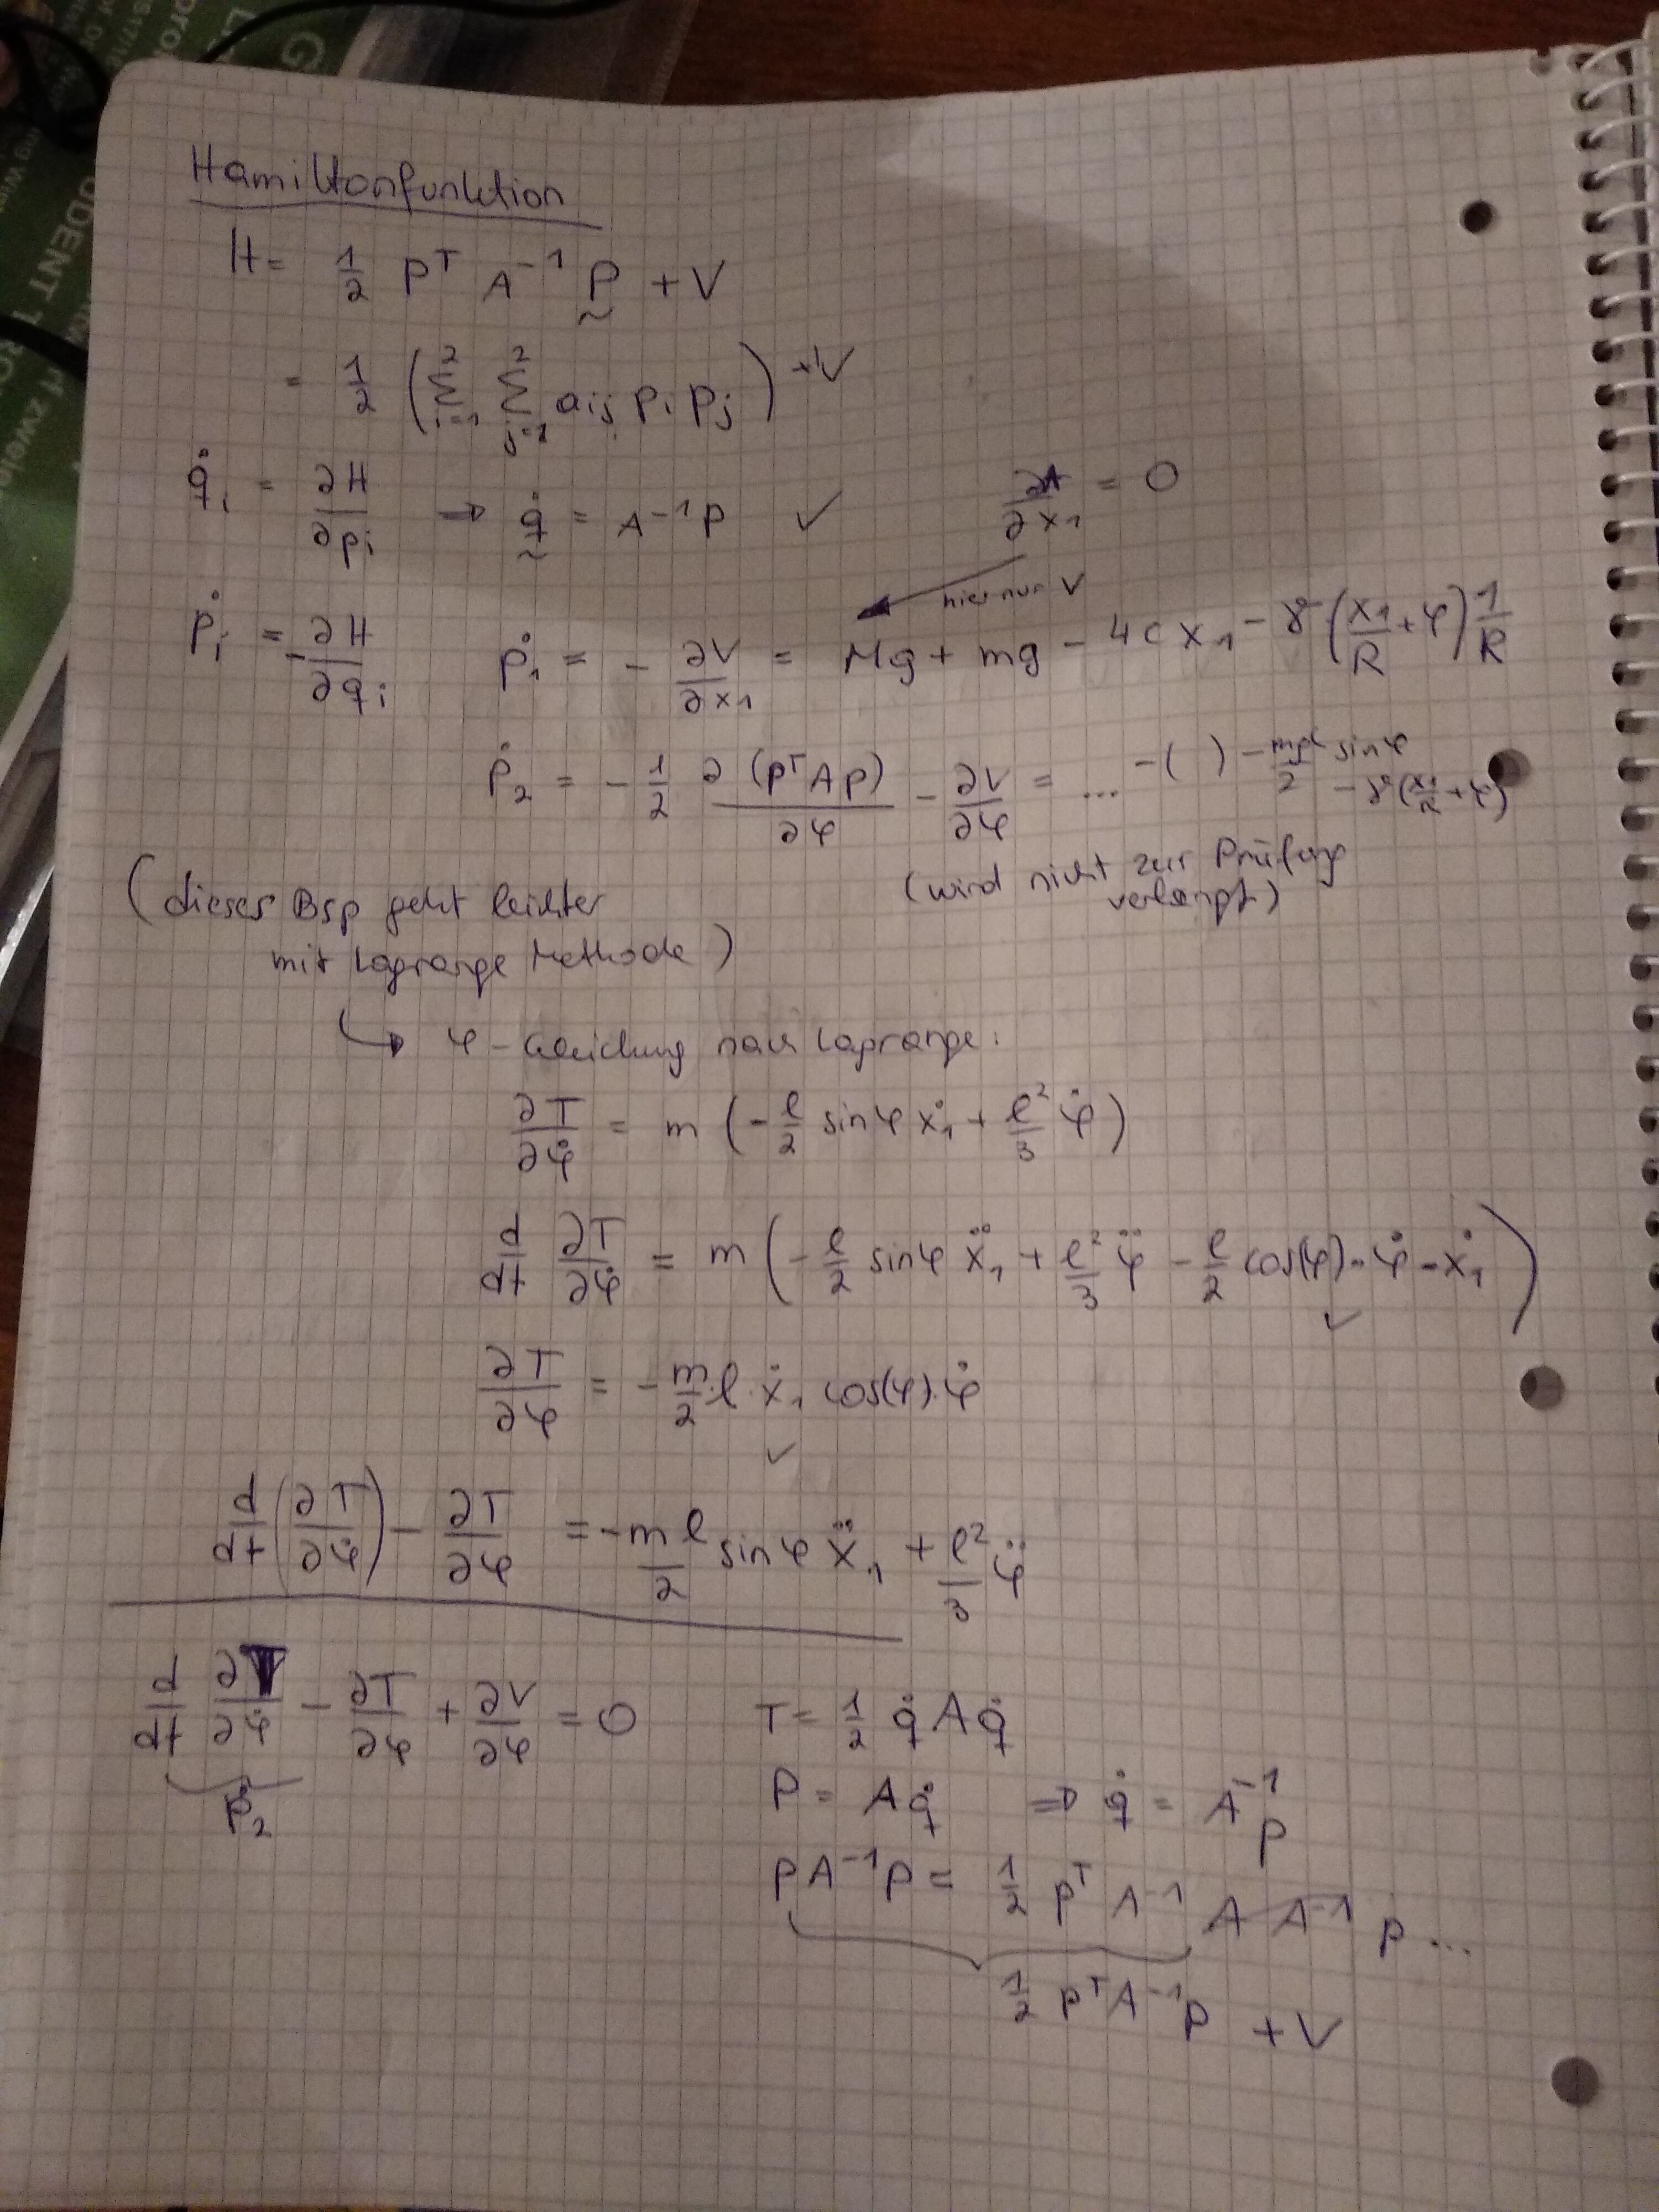 Hamiltonfunktion
H = 1/2 P^T A^-1 P + V
= 1/2 (∑_{i=1}^{2} ∑_{j=1}^{2} a_ij p_i p_j) + V
q̇_i = ∂H/∂p_i ⇒ q̇ = A^-1 p ✓ ∂A/∂x_1 = 0
hier nur V
ṗ_i = -∂H/∂q_i ṗ_1 = - ∂V/∂x_1 = Mg + mg - 4c x_1 - γ (x_1/R + φ) 1/R
ṗ_2 = - 1/2 ∂(p^T A p)/∂φ - ∂V/∂φ = ... -( ) - mgl/2 sin φ - γ(x_1/R + φ)
(wird nicht zur Prüfung
verlangt)
(dieses Bsp geht leichter
mit Lagrange Methode)
↪ φ-Gleichung nach Lagrange:
∂T/∂φ̇ = m (- l/2 sin φ ẋ_1 + l²/3 φ̇)
d/dt ∂T/∂φ̇ = m (- l/2 sin φ ẍ_1 + l²/3 φ̈ - l/2 cos(φ) · φ̇ · ẋ_1) ✓
∂T/∂φ = - m/2 · l · ẋ_1 cos(φ) · φ̇ ✓
d/dt (∂T/∂φ̇) - ∂T/∂φ = - m l/2 sin φ ẍ_1 + l²/3 φ̈
d/dt ∂T/∂φ̇ - ∂T/∂φ + ∂V/∂φ = 0
ṗ_2
T = 1/2 q̇ A q̇
P = A q̇ ⇒ q̇ = A^-1 p
p A^-1 p = 1/2 p^T A^-1 A A^-1 p ...
1/2 p^T A^-1 p + V